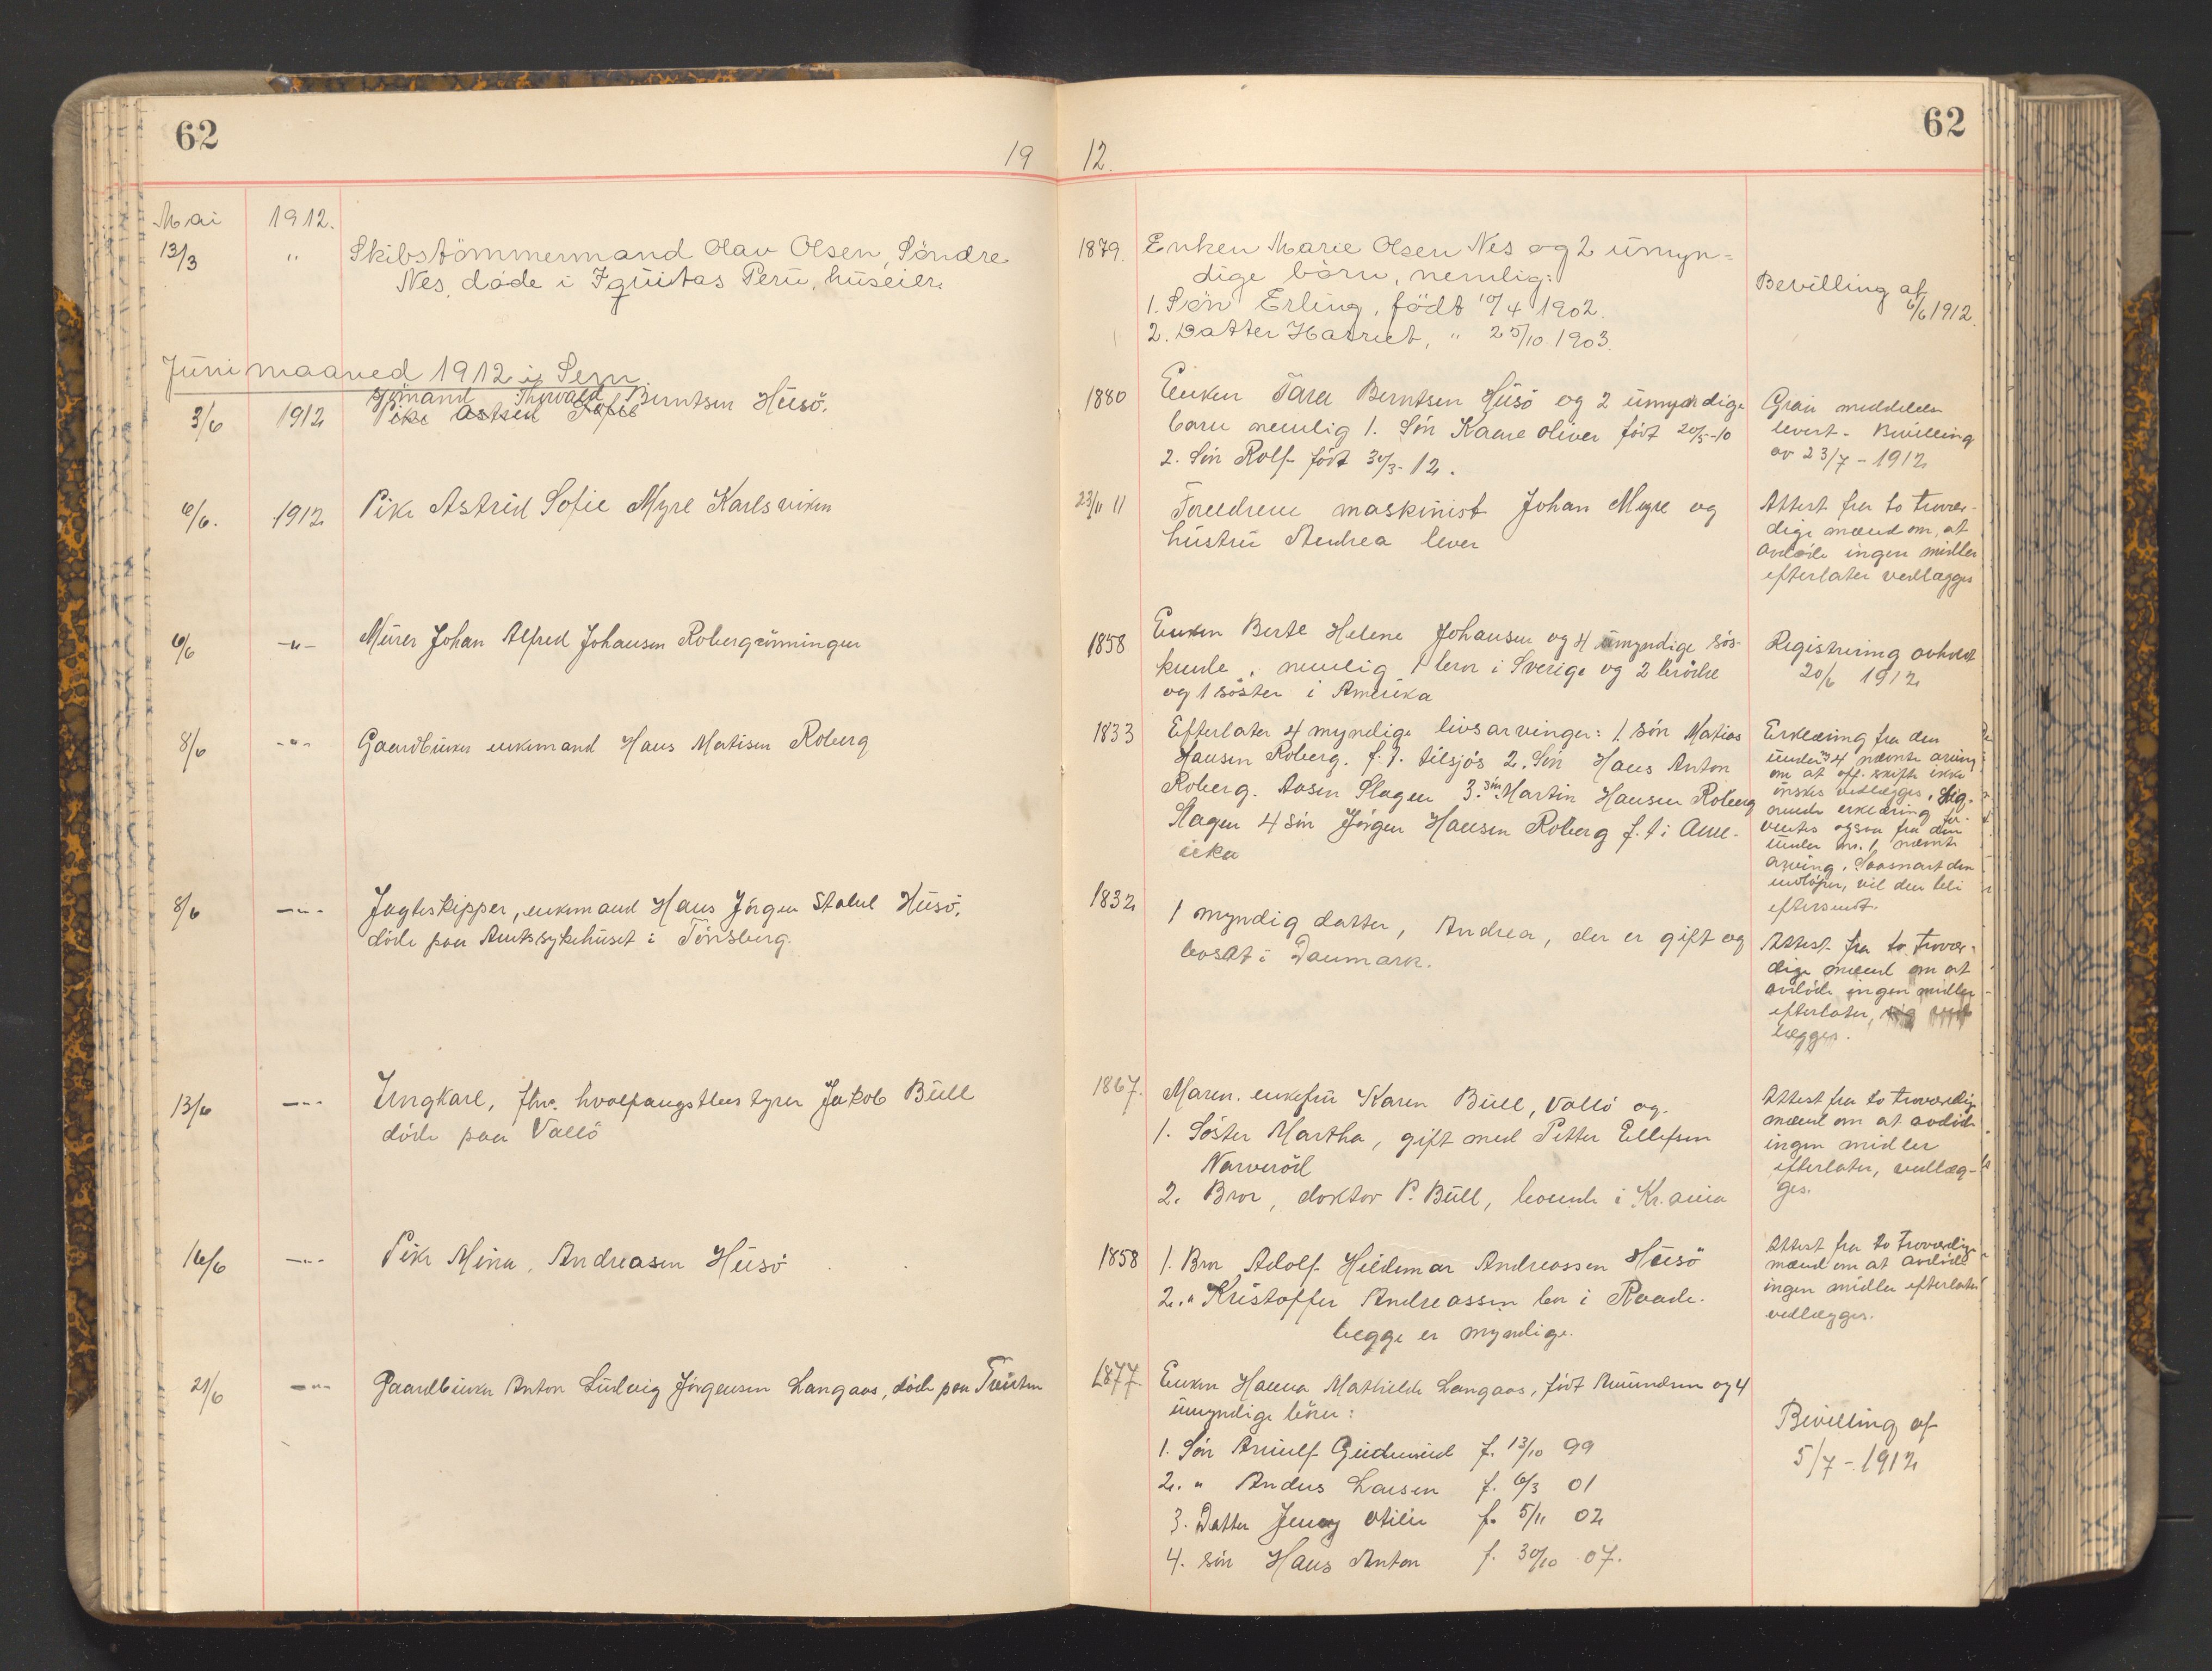 62
19
Mai 1912.
13/3 " Skibstömmermand Olav Olsen, Söndre
Nes, döde i Iquitas Peru, huseier.
Juni maaned 1912 i Sem
Sjömand Thorvald
3/6 1912 Pike Astrid Sofie Berntsen Husö.
6/6. 1912 Pike Astrid Sofie Myre Karlsviken
6/6 -"- Murer Johan Alfred Johansen Robergrönningen
8/6 -"- Gaardbruker enkemand Hans Matisen Roberg
8/6 -"- Jagtskipper, enkemand Hans Jörgen Stabel Husö,
döde paa Amtssykehuset i Tönsberg.
13/6 -"- Ungkarl, fhv. hvalfangstbestyrer Jakob Bull
döde paa Vallö
16/6 -"- Pike Mina Andreasen Husö
21/6 -"- Gaardbruker Anton Ludvig Jörgensen Langaas, döde paa
62
12.
1879. Enken Marie Olsen Nes og 2 umyn=
dige börn, nemlig:
1. Sön Erling, födt 10/4 1902.
2. Datter Harriet, " 25/10 1903.
Bevilling af
6/6 1912.
1880 Enken Tara Berntsen Husö og 2 umyndige
barn nemlig 1. Sön Kaare Oliver födt 20/5-10
2. Sön Rolf födt 30/3-12.
meddelelse
levert - Bevilling
av 23/7 - 1912
23/11 11 Forældrene maskinist Johan Myre og
hustru Andrea lever
Attest fra to trovær-
dige mænd om, at
avdöde ingen midler
efterlater vedlægges
1858 Enken Berte Helene Johansen og 4 umyndige sös-
kende, nemlig 1 bror i Sverige og 2 brödre
og 1 söster i Amerika
Registrering avholdt
20/6 1912
1833 Efterlater 4 myndige livsarvinger: 1. sön Matias
Hansen Roberg. f. t. tilsjös 2. Sön Hans Anton
Roberg. Aasen Slagen 3. sön Martin Hansen Roberg
Slagen 4 sön Jörgen Hansen Roberg f. t i Ame-
rika
Erklæring fra den
under 4 nævnte arving
om at off. skifte ikke
önskes vedlægges, Lig-
nende erklæring for-
ventes ogsaa fra den
under nr. 1 nævnte
arving. Saasnart den
indlöper, vil den bli
eftersendt.
1832 1 myndig datter, Andrea, der er gift og
bosat i Danmark.
Attest fra to trovær-
dige mænd om at
avdöde ingen midler
efterlater,
lægges.
1867. Moren. enkefru Karen Bull, Vallö og.
1. Söster Martha, gift med Petter Ellefsen
Narveröd
2. Bror, doktor P. Bull, boende i Kr.ania
Attest fra to troværdige
mænd om at avdöde
ingen midler
efterlater, vedlæg-
ges.
1858 1. Bror Adolf Hildemar Andreassen Husö
2. " Kristoffer Andreassen bor i Raade.
begge er myndige.
Attest fra to troværdige
mænd om at avdöde
ingen midler efterlater
vedlægges.
1877. Enken Hanna Mathilde Langaas, födt Amundsen og 4
umyndige börn:
1. Sön Arnulf Gudmund f. 13/10 99
2. " Anders Lausen f. 6/3 01
3. Datter Jenny Otilie f. 5/11 02
4. sön Hans Anton f. 30/10 07.
Bevilling af
5/7 - 1912